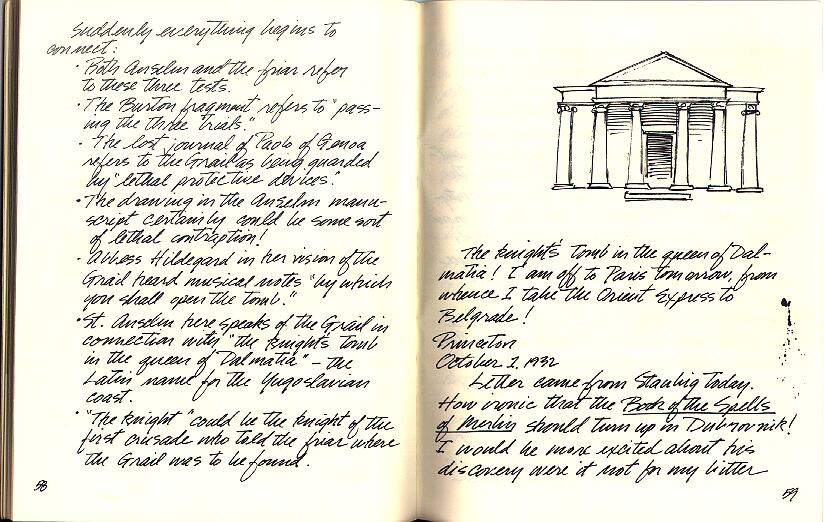 Suddenly everything begins to
connect:
• Both Anselm and the friar refer
to these three tests.
• The Burton fragment refers to "pass-
ing the three trials."
• The lost journal of Paolo of Genoa
refers to the Grail as being guarded
by "lethal protective devices".
• The drawing in the Anselm manu-
script certainly could be some sort
of lethal contraption!
• Abbess Hildegard in her vision of the
Grail heard musical notes "by which
you shall open the tomb."
• St. Anselm here speaks of the Grail in
connection with "the knight's tomb
in the queen of Dalmatia" – the
Latin name for the Yugoslavian
coast.
• "The knight" could be the knight of the
first crusade who told the friar where
the Grail was to be found.
58
The knight's tomb in the queen of Dal-
matia! I am off to Paris tomorrow, from
whence I take the Orient Express to
Belgrade!
Princeton
October 2, 1932
Letter came from Stanbig today.
How ironic that the Book of the Spells
of Merlin should turn up in Dubrovnik!
I would be more excited about his
discovery were it not for my bitter
59